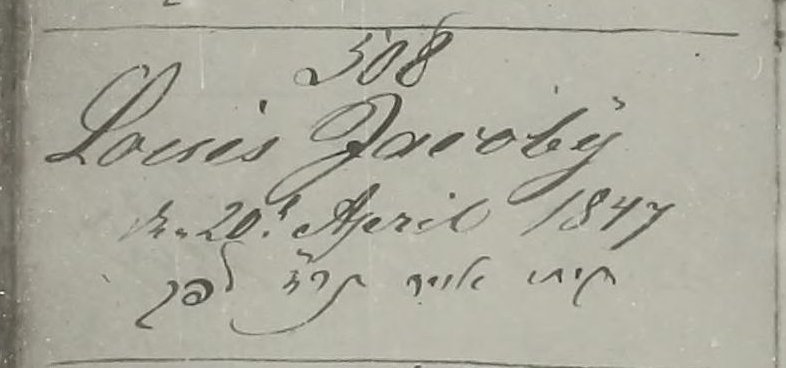 508
Louis Jacobÿ
20.t April 1847
אייר תר״ז לפק